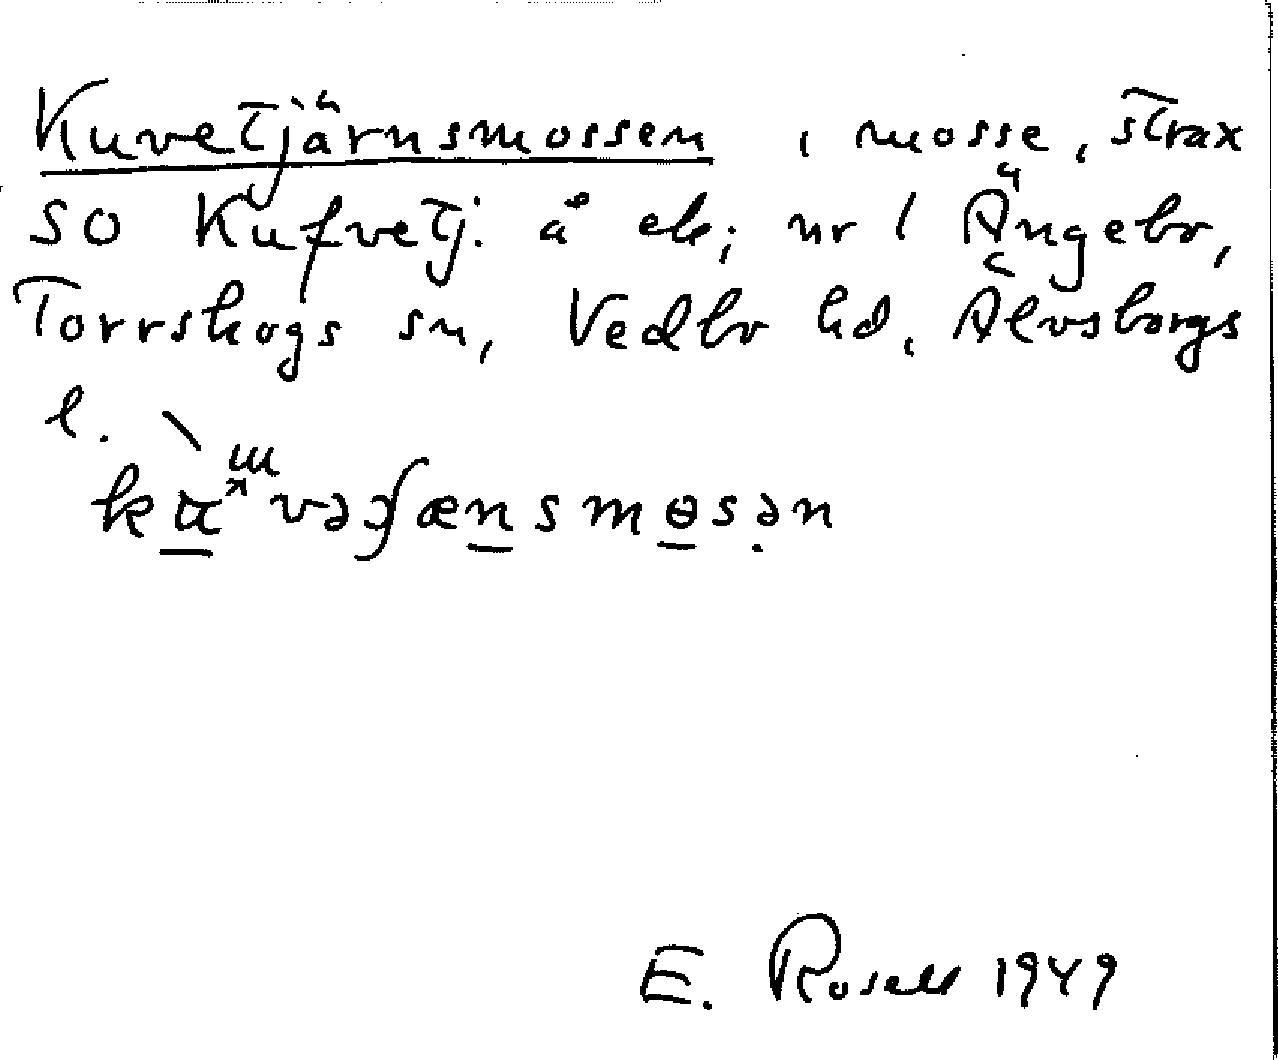 Kuvetjärnsmossen, mosse, strax
SO Kufvetj. å ek; nr 1 Ängebo,
Torrskogs sn, Vedbo hd, Älvsborgs
l.
E. Rosell 1949